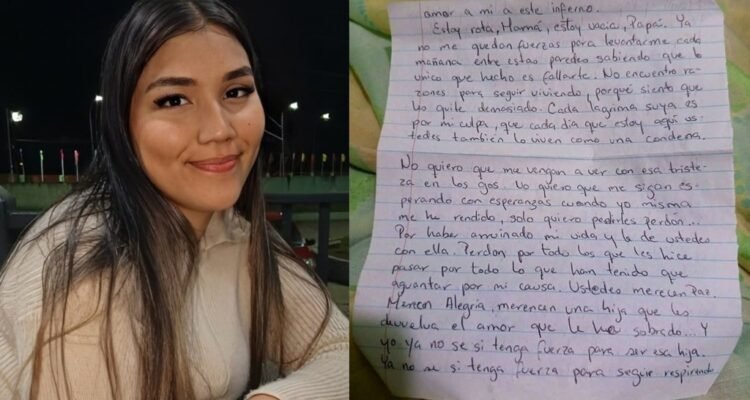 amor a mi a este infierno.
Estoy rota, Mamá, estoy vacia, Papai. Ya
no me quedan fuerzas para levantarme cada
mañana entre estas paredes sabiendo que lo
unico que hecho es fallarte. No encuentro ra-
zones para seguir viviendo, porque siento que
les quite demasiado. Cada lagrima suya es
por mi culpa, que cada dia que estoy aqui us-
tedes también lo viven como una condena.
No quiero que me vengan a ver con esa triste-
za en los ojos. No quiero que me sigan es-
perando con esperanzas cuando yo misma
me he rendido, solo quiero pedirles perdón...
Por haber arruinado mi vida y la de ustedes
con ella. Perdon por todo los que les hice
pasar por todo lo que han tenido que
aguantar por mi causa. Ustedes merecen Paz.
Merecen Alegria, merecen una hija que les
devuelva el amor que le ha sobrado... Y
yo ya no se si tenga fuerza para ser esa hija.
Ya no se si tenga fuerza para seguir respirando